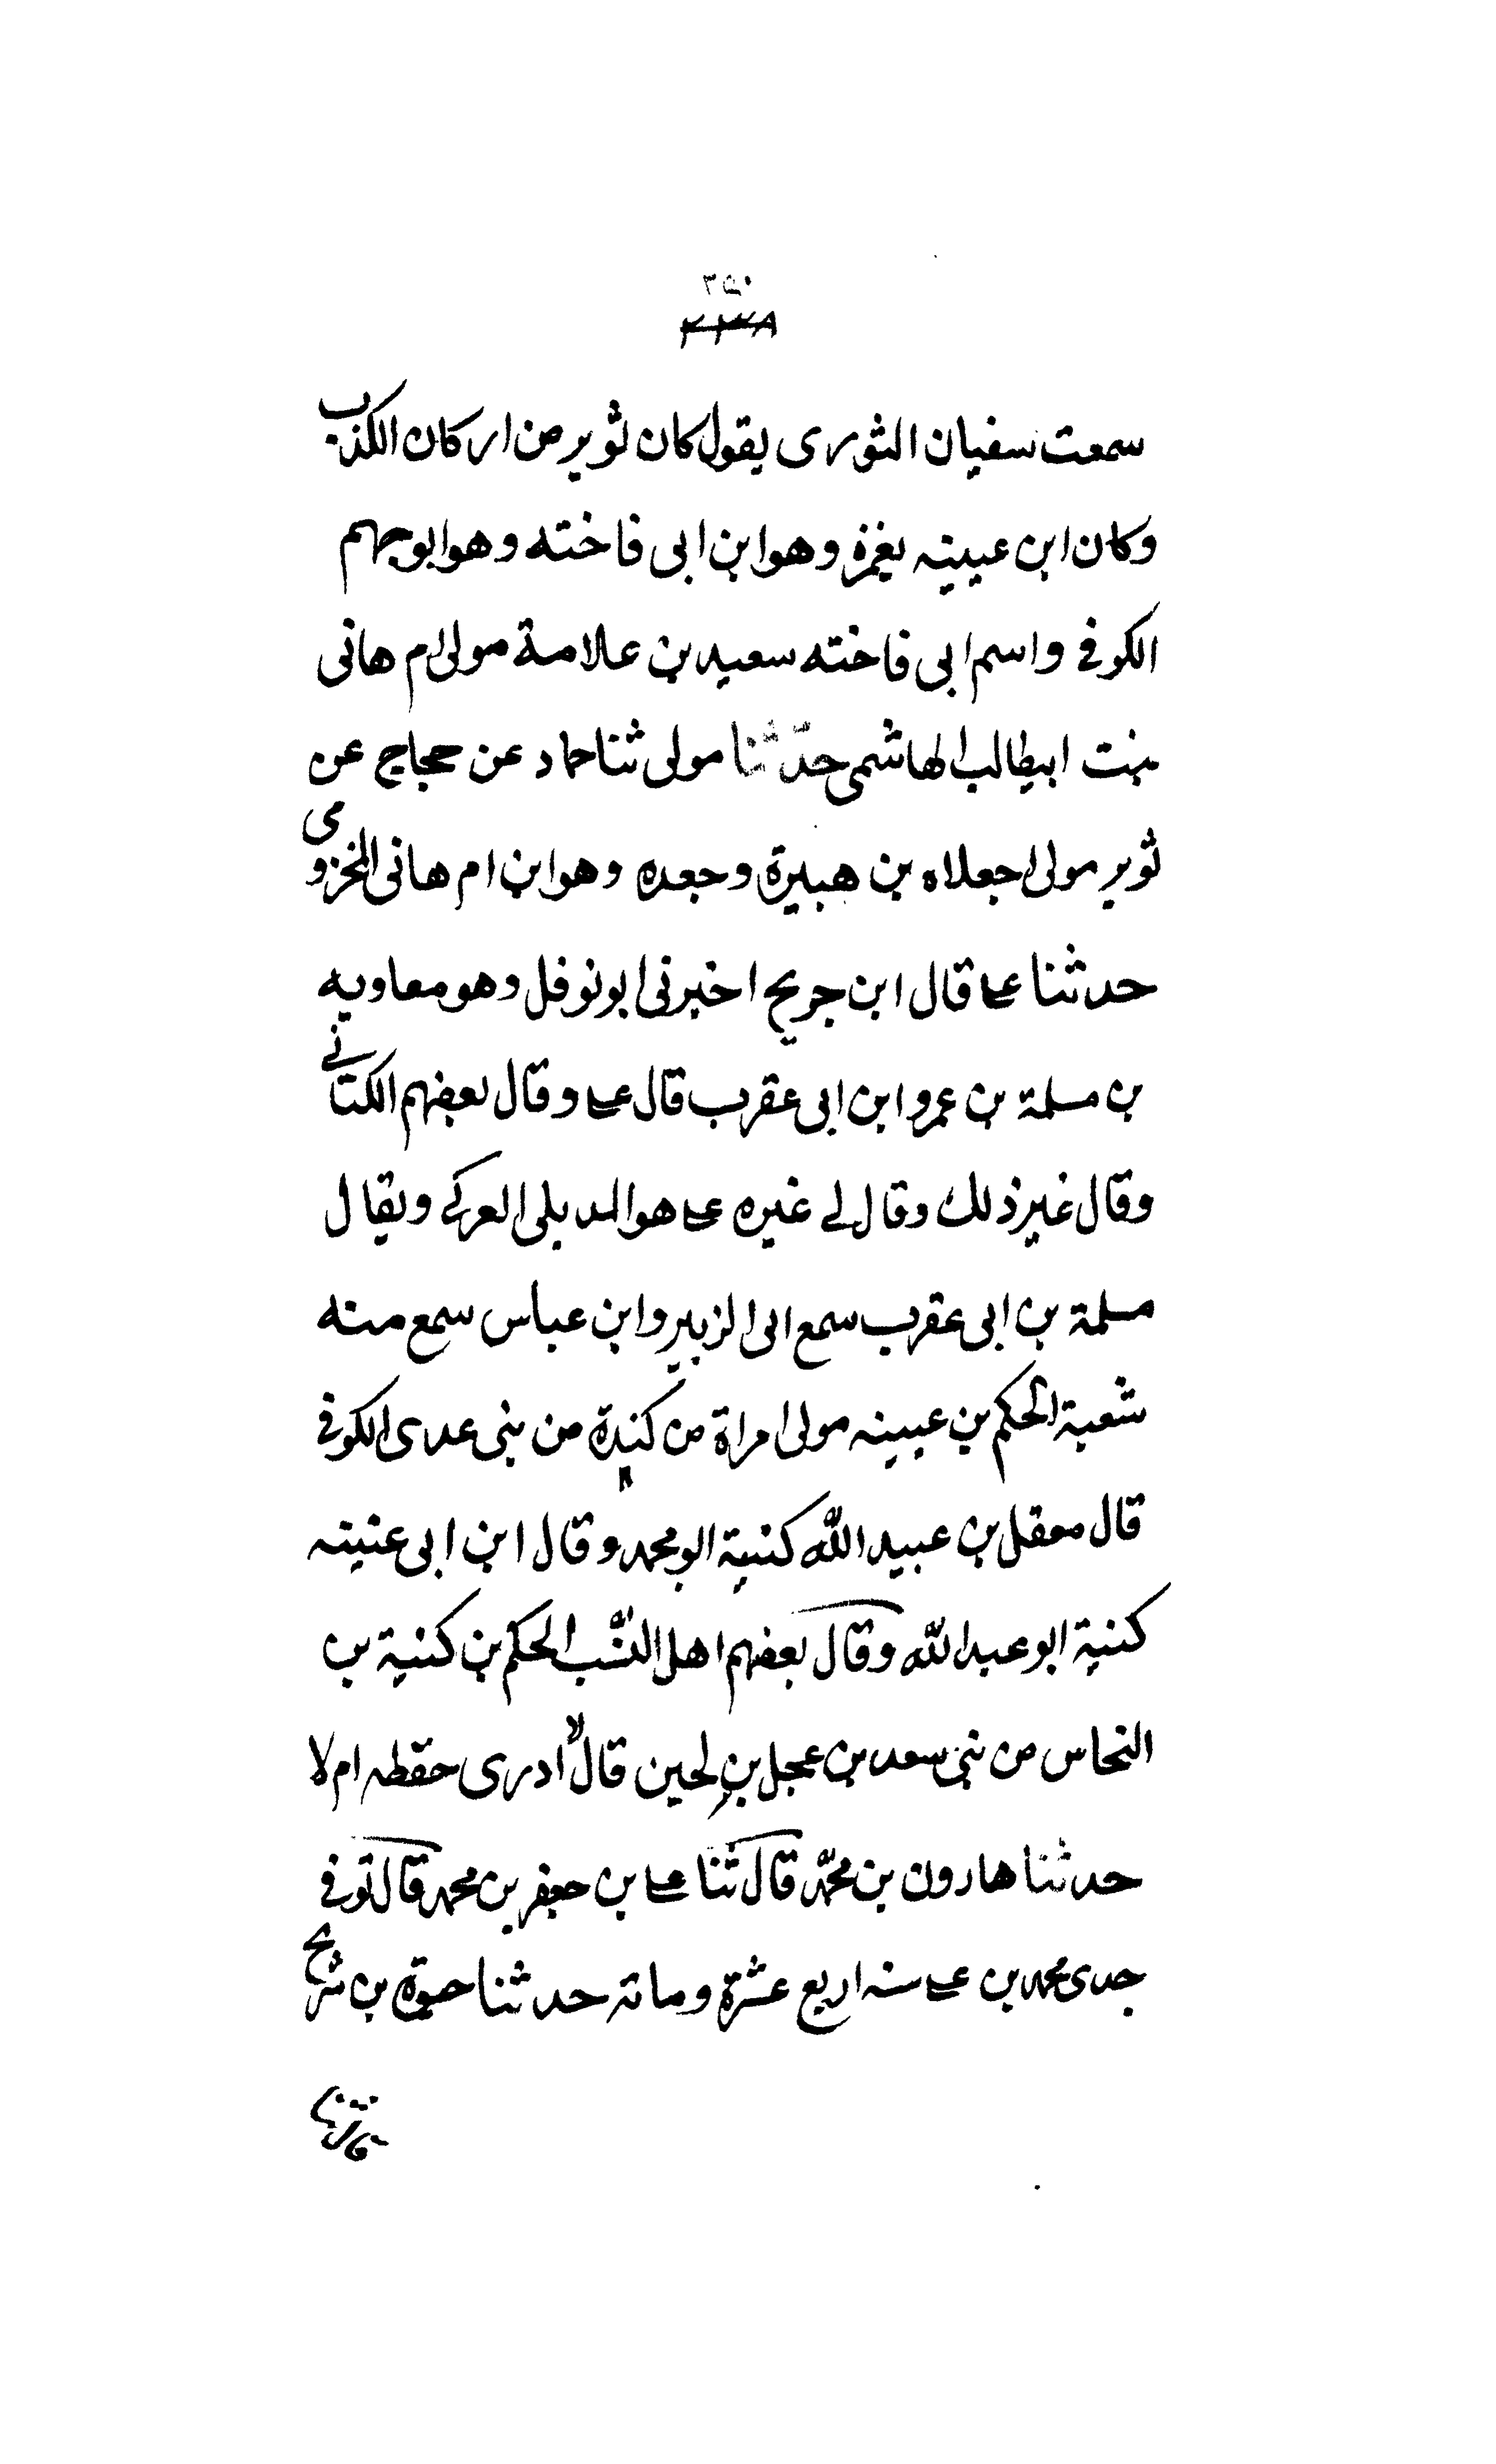 ٣٥٠
٢٣٨
سمعت سفيان الثورى يقول كان ثوير من اركان الكذب
وكان ابن عيينه يغمزه وهو ابن ابى فاخته وهو ابو جهم
الكوفى واسم ابى فاخته سعيد بن علامة مولى ام هانى
بنت ابيطالب الهاشمى حدّثنا مولى ثنا حماد عن حجاج عن
ثوير مولى اجعلاه بن هبيرة وجعده وهو ابن ام هانى المخزومى
حدثنا على قال ابن جريح اخبرنى ابو نوفل وهو معاويه
بن مسلمة بن عمرو ابن ابى عقرب قال على وقال بعضهم الكتانى
وقال غير ذلك وقال لى غيره على هو الديلى العركى ويقال
مسلمة بن ابى عقرب سمع ابى الزبير وابن عباس سمع منه
شعبة الحكم بن عيينه مولى امراة من كندة من بنى عدى الكوفى
قال معقل بن عبيد الله كنية ابو محمد وقال ابن ابى عنيته
كنية ابو عبد الله وقال بعضهم اهل النسب الحكم بن كنية بن
النحاس من بنى سعد بن عجل بن لحين قال لا ادرى حقطه ام لا
حدثنا هارون بن محمّد قال ثنا على بن جعفر بن محمد قال توفى
جدى محمد بن على سنه اربع عشرة ومائة حدثنا حيوة بن شريح